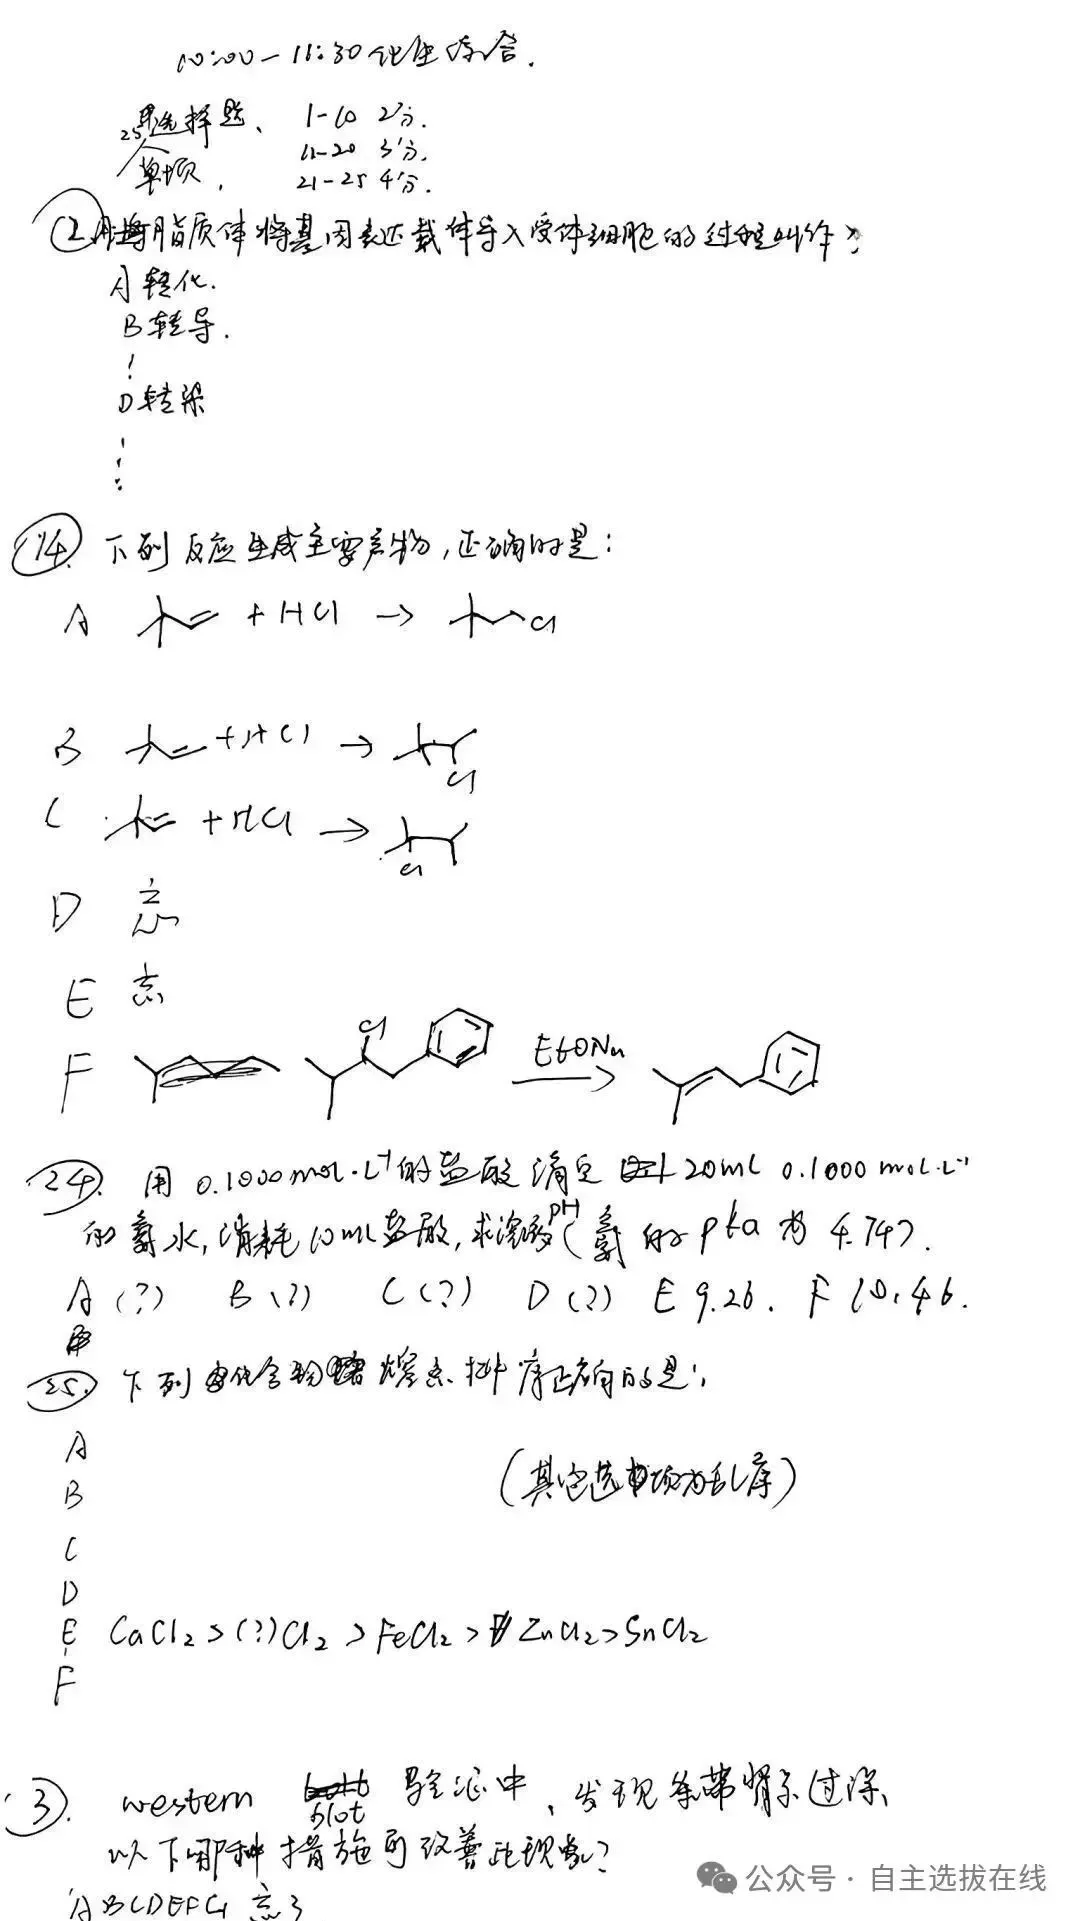 10:00-11:30 化生综合.
25个选择题、 1-10 2分.
单项. 11-20 3分.
21-25 4分.
② 用脂质体将基因表达载体导入受体细胞的过程叫作?
A 转化.
B 转导.
D 转染
14. 下列反应生成主要产物,正确的是:
A + HCl → Cl
B + HCl → Cl
C + HCl → Cl
D 忘
E 忘
F Cl EtONa
24. 用 0.1000 mol·L⁻¹的盐酸滴定 20mL 0.1000 mol·L⁻¹
的氨水,消耗10ml盐酸,求溶液pH(氨的pka为 4.74).
A (?) B (?) C (?) D (?) E 9.26. F 10.46.
25. 下列化合物熔点排序正确的是:
A
(其它选项为乱序)
B
C
D
E CaCl₂ > (?)Cl₂ > FeCl₂ > ZnCl₂ > SnCl₂
F
3. western blot 验证中,发现条带背景过深,
以下哪种措施可改善此现象?
ABCDEFG 忘了
公众号 · 自主选拔在线